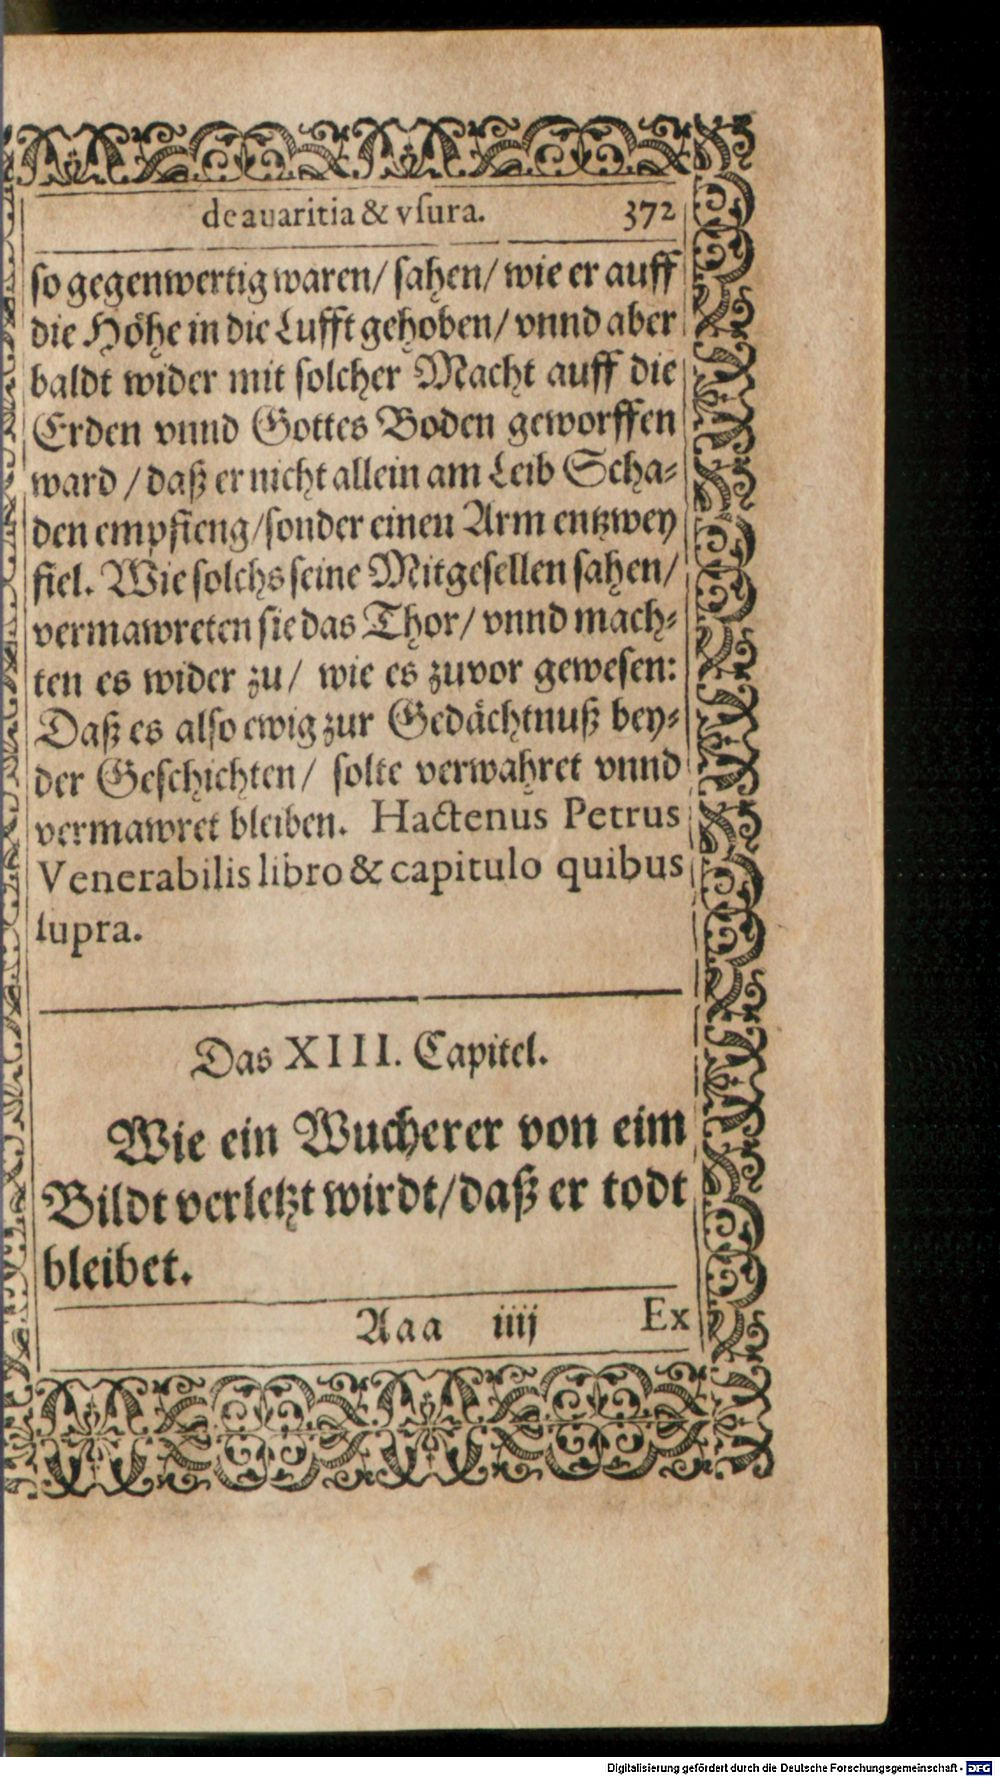 de avaritia & vſura. 372
ſo gegenwertig waren/ ſahen/ wie er auff
die Höhe in die Lufft gehoben/ vnnd aber
baldt wider mit ſolcher Macht auff die
Erden vnnd Gottes Boden geworffen
ward / daß er nicht allein am Leib Scha⸗
den empfieng/ſonder einen Arm entzwey
fiel. Wie ſolchs ſeine Mitgeſellen ſahen/
vermawreten ſie das Thor/ vnnd mach⸗
ten es wider zu/ wie es zuvor geweſen:
Daß es alſo ewig zur Gedächtnuß bey⸗
der Geſchichten/ ſolte verwahret vnnd
vermawret bleiben. Hactenus Petrus
Venerabilis libro & capitulo quibus
ſupra.
Das XIII. Capitel.
Wie ein Wucherer von eim
Bildt verletzt wirdt/daß er todt
bleibet.
Aaa iiij Ex
Digitalisierung gefördert durch die Deutsche Forschungsgemeinschaft - DFG